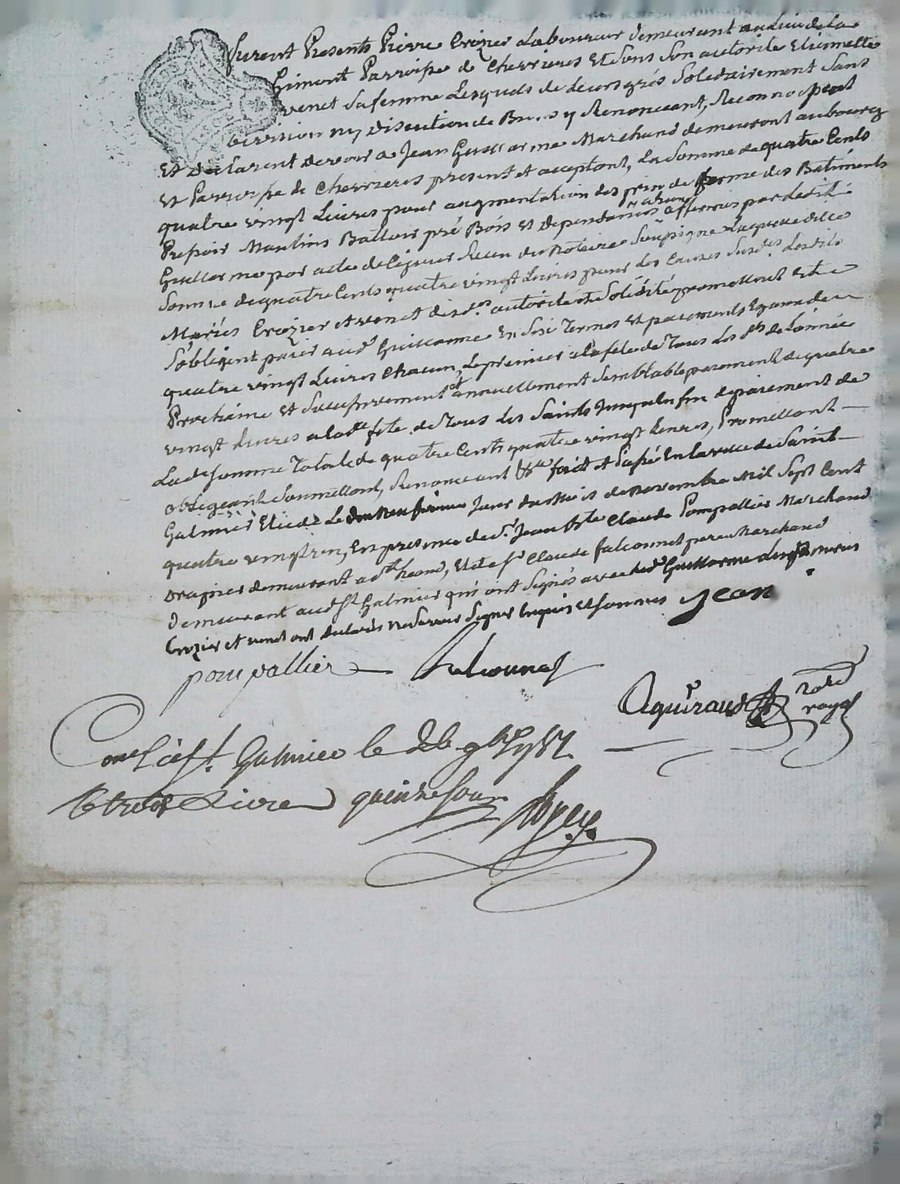 furent Presents Pierre Crozier Laboureur demeurant au Lieu de la
Gimont Parroisse de Chevrieres Et Sous Son autorité Etiennette
venet sa femme Lesquels de Leurs grés Solidairement Sans
division ny discution de Biens y Renonceant, Reconnoissent
Et declarent devoir a Jean Guillarme Marchand demeurant au bourg
et Parroisse de Chevrieres present et acceptant, La Somme de quatre Cents
quatre vingt Livres pour augmentation des prix de ferme des Batiments
Pressoir Moulins Battoir pré Bois et dependances affermés par ledit
Guillarme par acte de Cejour Recu du Notaire Soussigné Laquelle ditte
Somme de quatre Cents quatre vingt Livres pour Les Causes Susd.es Lesdits
Mariés Crozier et venet desd.s autorité et Solidité promettent et
S'obligent paier aud. Guillarme En Six Termes Et paiements Egaux de
quatre vingt Livres Chacun, Le premier a la fete de Tous Les S.ts de L'année
Prochaine et Successivement annuellement Semblable paiement de quatre
vingt Livres a lad.e fete de Tous Les Saints Jusqu'a fin de paiement de
La de Somme Totale de quatre Cents quatre vingt Livres, Promettant
obligeant Soumettant, Renonceant &a fait et Passé En la ville de Saint
Galmier Etude Le Jour du Mois de Novembre Mil Sept Cent
quatre vingt un, En presence de S.r Jean Bte Claude Pompallier Marchand
Drapier demeurant a, Et de S.r Claude falconnet pareil Marchand
demeurant aud. St Galmier qui ont Signés avec led. Guillarme
Crozier et venet ont declarés ne Savoir Signer Enquis et Sommés Jean
pompallier falconnet
Aguiraud not.e
royal
Con.lé a St. Galmier le
livres quinze sous